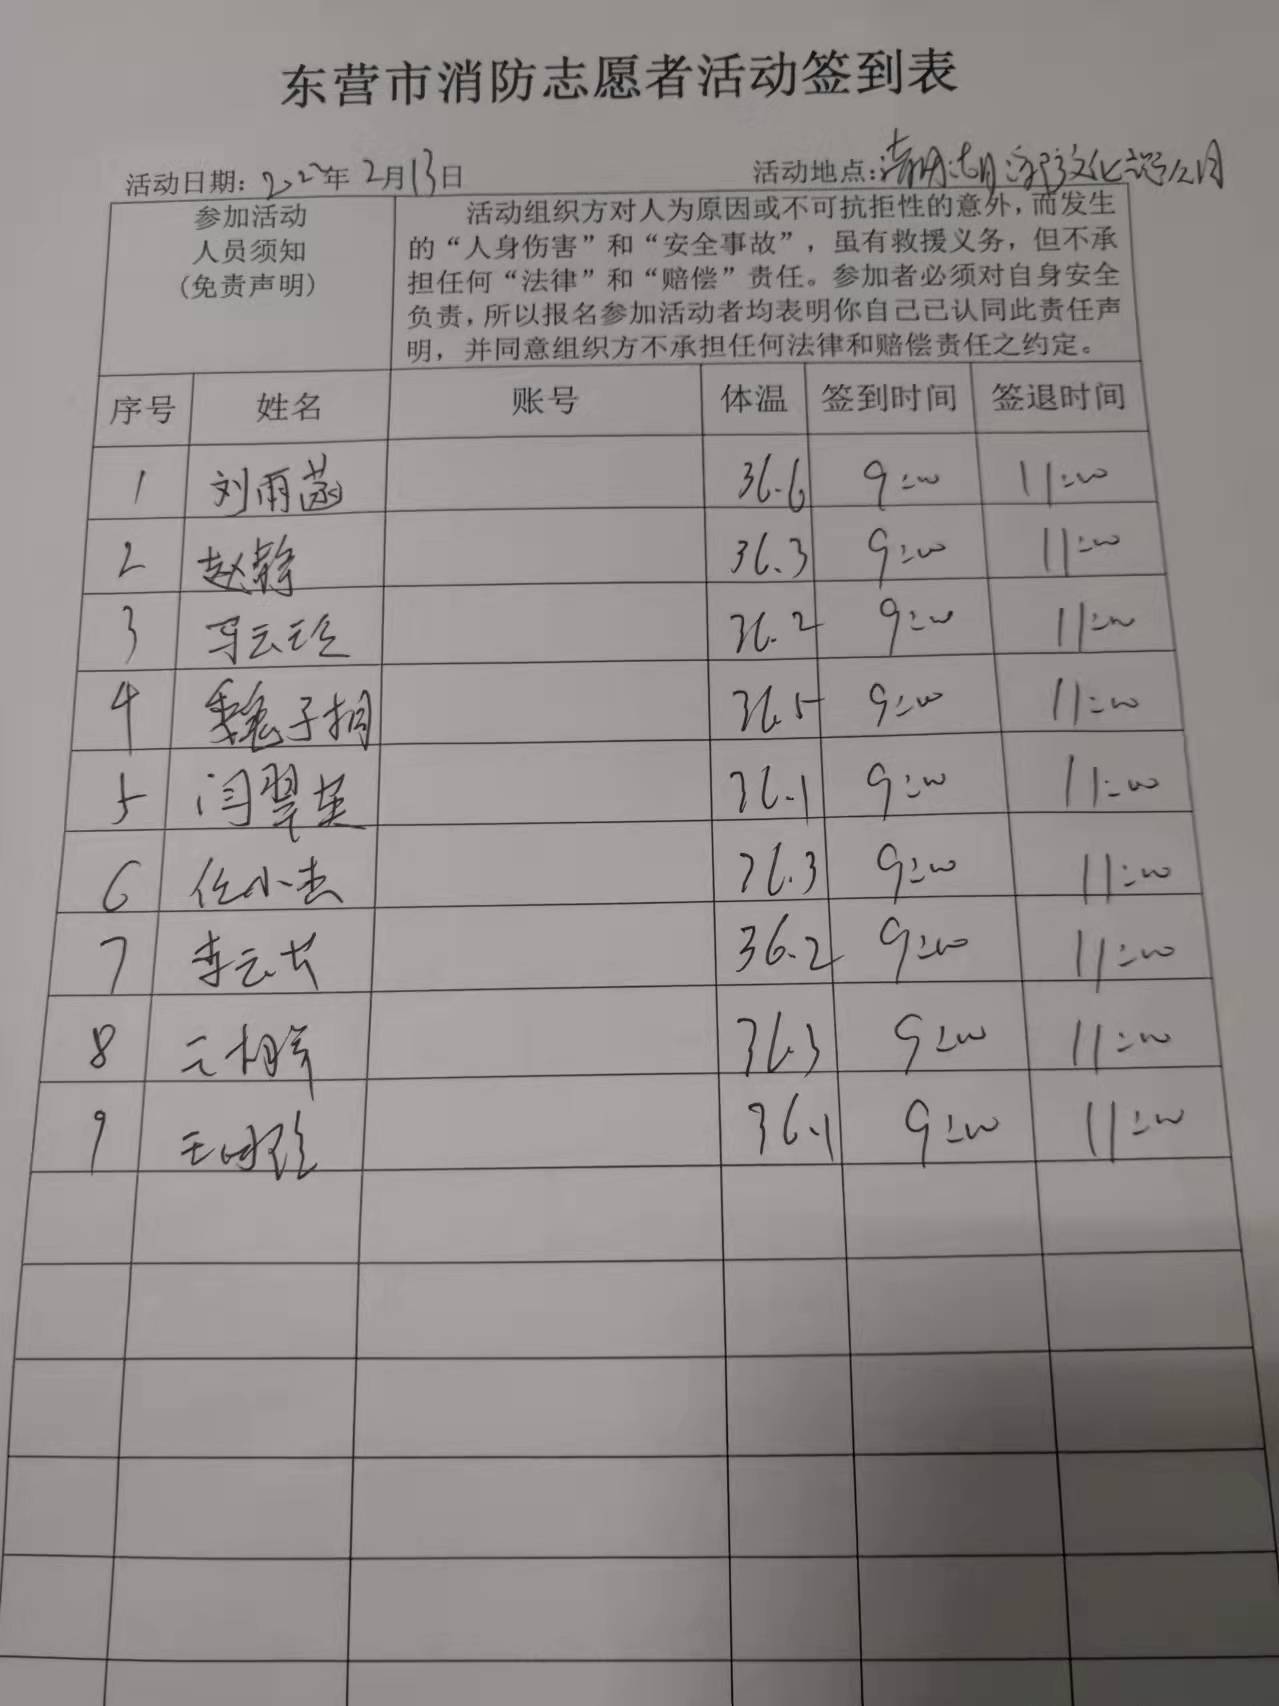 东营市消防志愿者活动签到表
活动日期: 2022年2月13日 活动地点:清风湖消防文化主题公园
参加活动
人员须知
(免责声明)
活动组织方对人为原因或不可抗拒性的意外,而发生
的“人身伤害”和“安全事故”,虽有救援义务,但不承
担任何“法律”和“赔偿”责任。参加者必须对自身安全
负责,所以报名参加活动者均表明你自己已认同此责任声
明,并同意组织方不承担任何法律和赔偿责任之约定。
序号 姓名 账号 体温 签到时间 签退时间
1 刘雨菡 36.6 9:00 11:00
2 赵静 36.3 9:00 11:00
3 马云 36.2 9:00 11:00
4 魏子栩 36.5 9:00 11:00
5 闫翠英 36.1 9:00 11:00
6 任小杰 36.3 9:00 11:00
7 李云 36.2 9:00 11:00
8 36.3 9:00 11:00
9 王 36.1 9:00 11:00